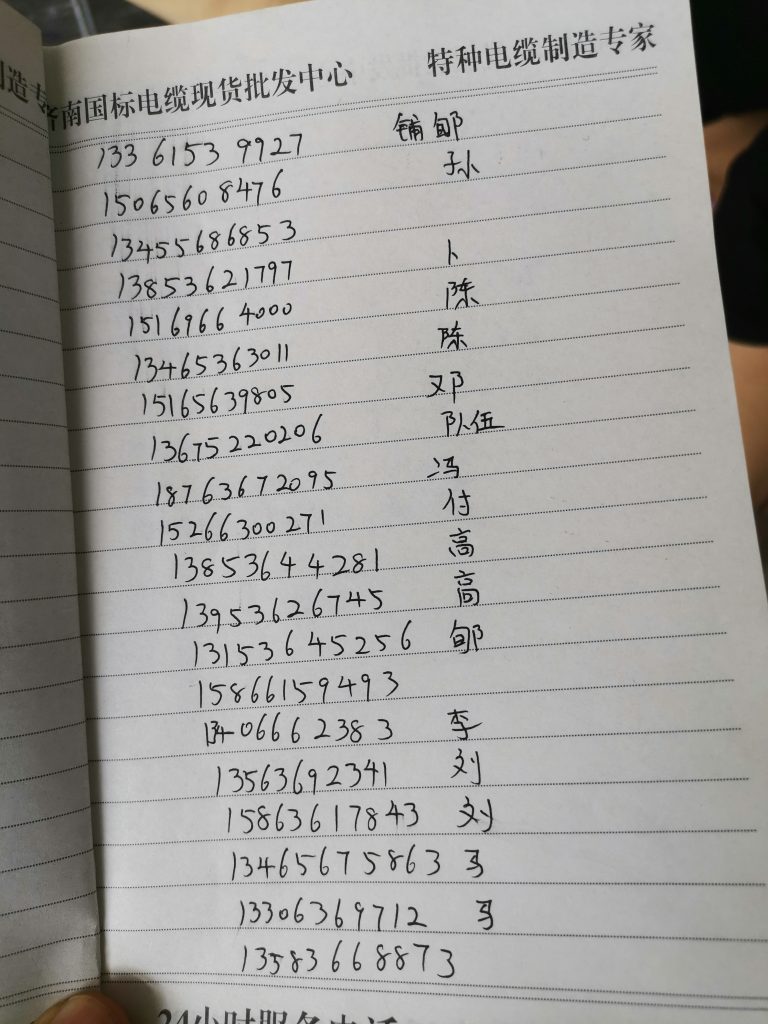 造专
济南国标电缆现货批发中心 特种电缆制造专家
133 6153 9927 铺 郇
15065608476 孙
13455686853
13853621797 卜
15169664000 陈
13465363011 陈
15165639805 邓
13675220206 队伍
18763672095 冯
15266300271 付
13853644281 高
13953626745 高
13153645256 郇
15866159493
13406662383 李
13563692341 刘
15863617843 刘
13465675863 马
13306369712 马
13583668873
24小时服务电话